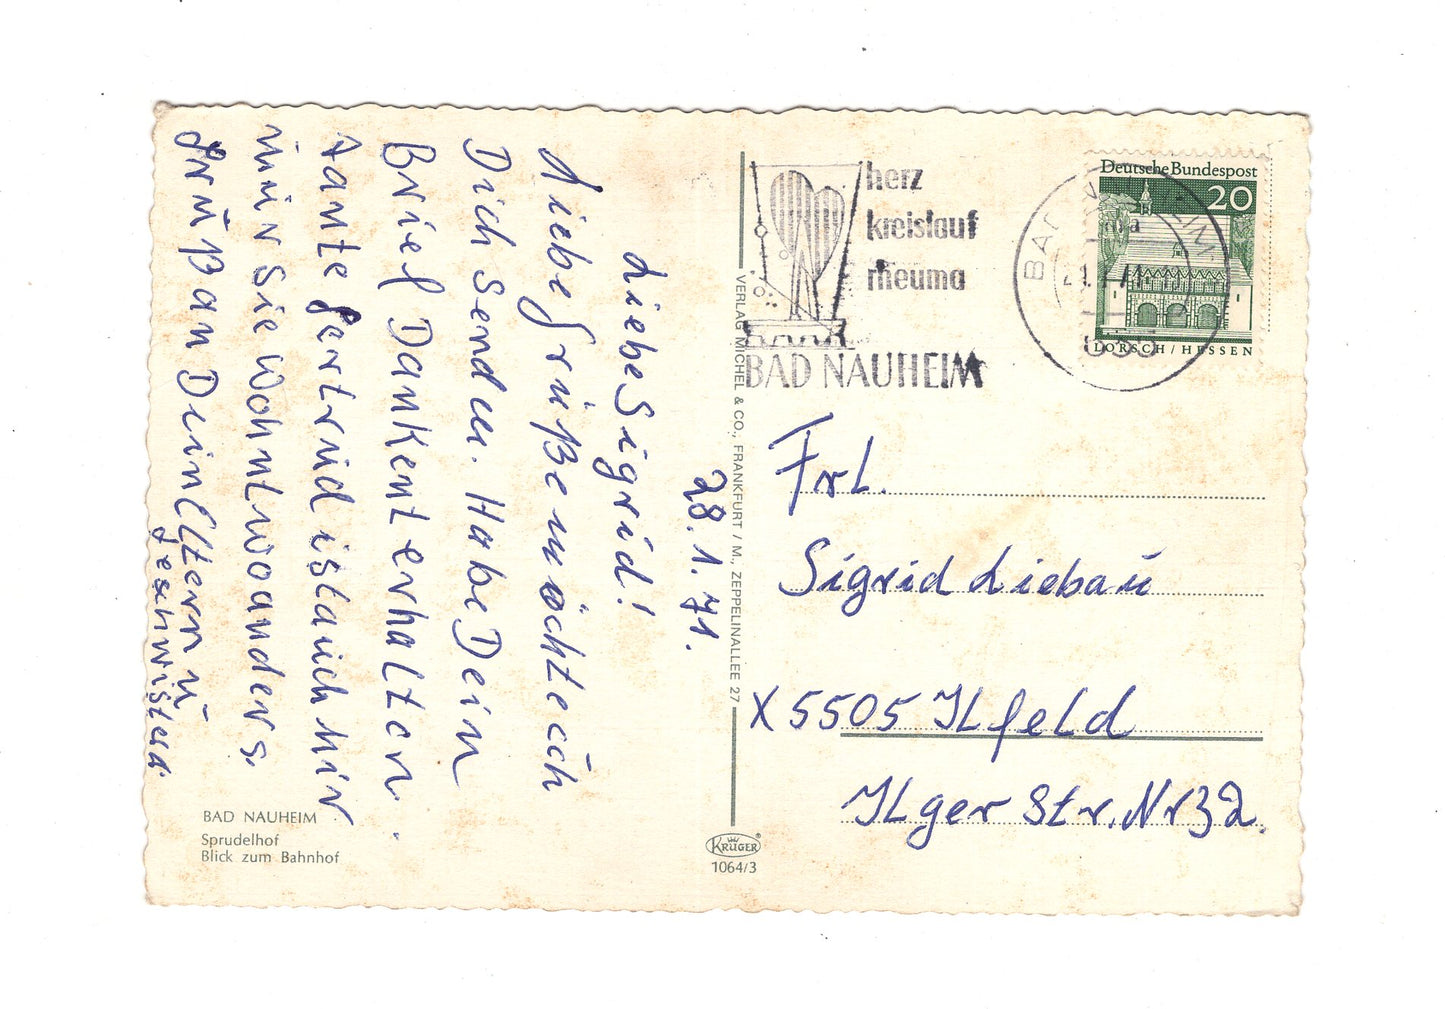 28.1.71.
Liebe Sigrid!
Liebe Grüße möchte ich
Dich senden. Habe Dein
Brief Dankent erhalten.
Tante Gertrud ist auch hir
nur sie wohnt wo anders.
Gruß an Dein Eltern u
geschwistern.
BAD NAUHEIM
Sprudelhof
Blick zum Bahnhof
VERLAG MICHEL & CO., FRANKFURT / M., ZEPPELINALLEE 27
KRÜGER
1064/3
herz
kreislauf
rheuma
BAD NAUHEIM
Deutsche Bundespost
20
LORSCH / HESSEN
Frl.
Sigrid Liebau
X 5505 Ilfeld
Ilger Str. Nr 32.